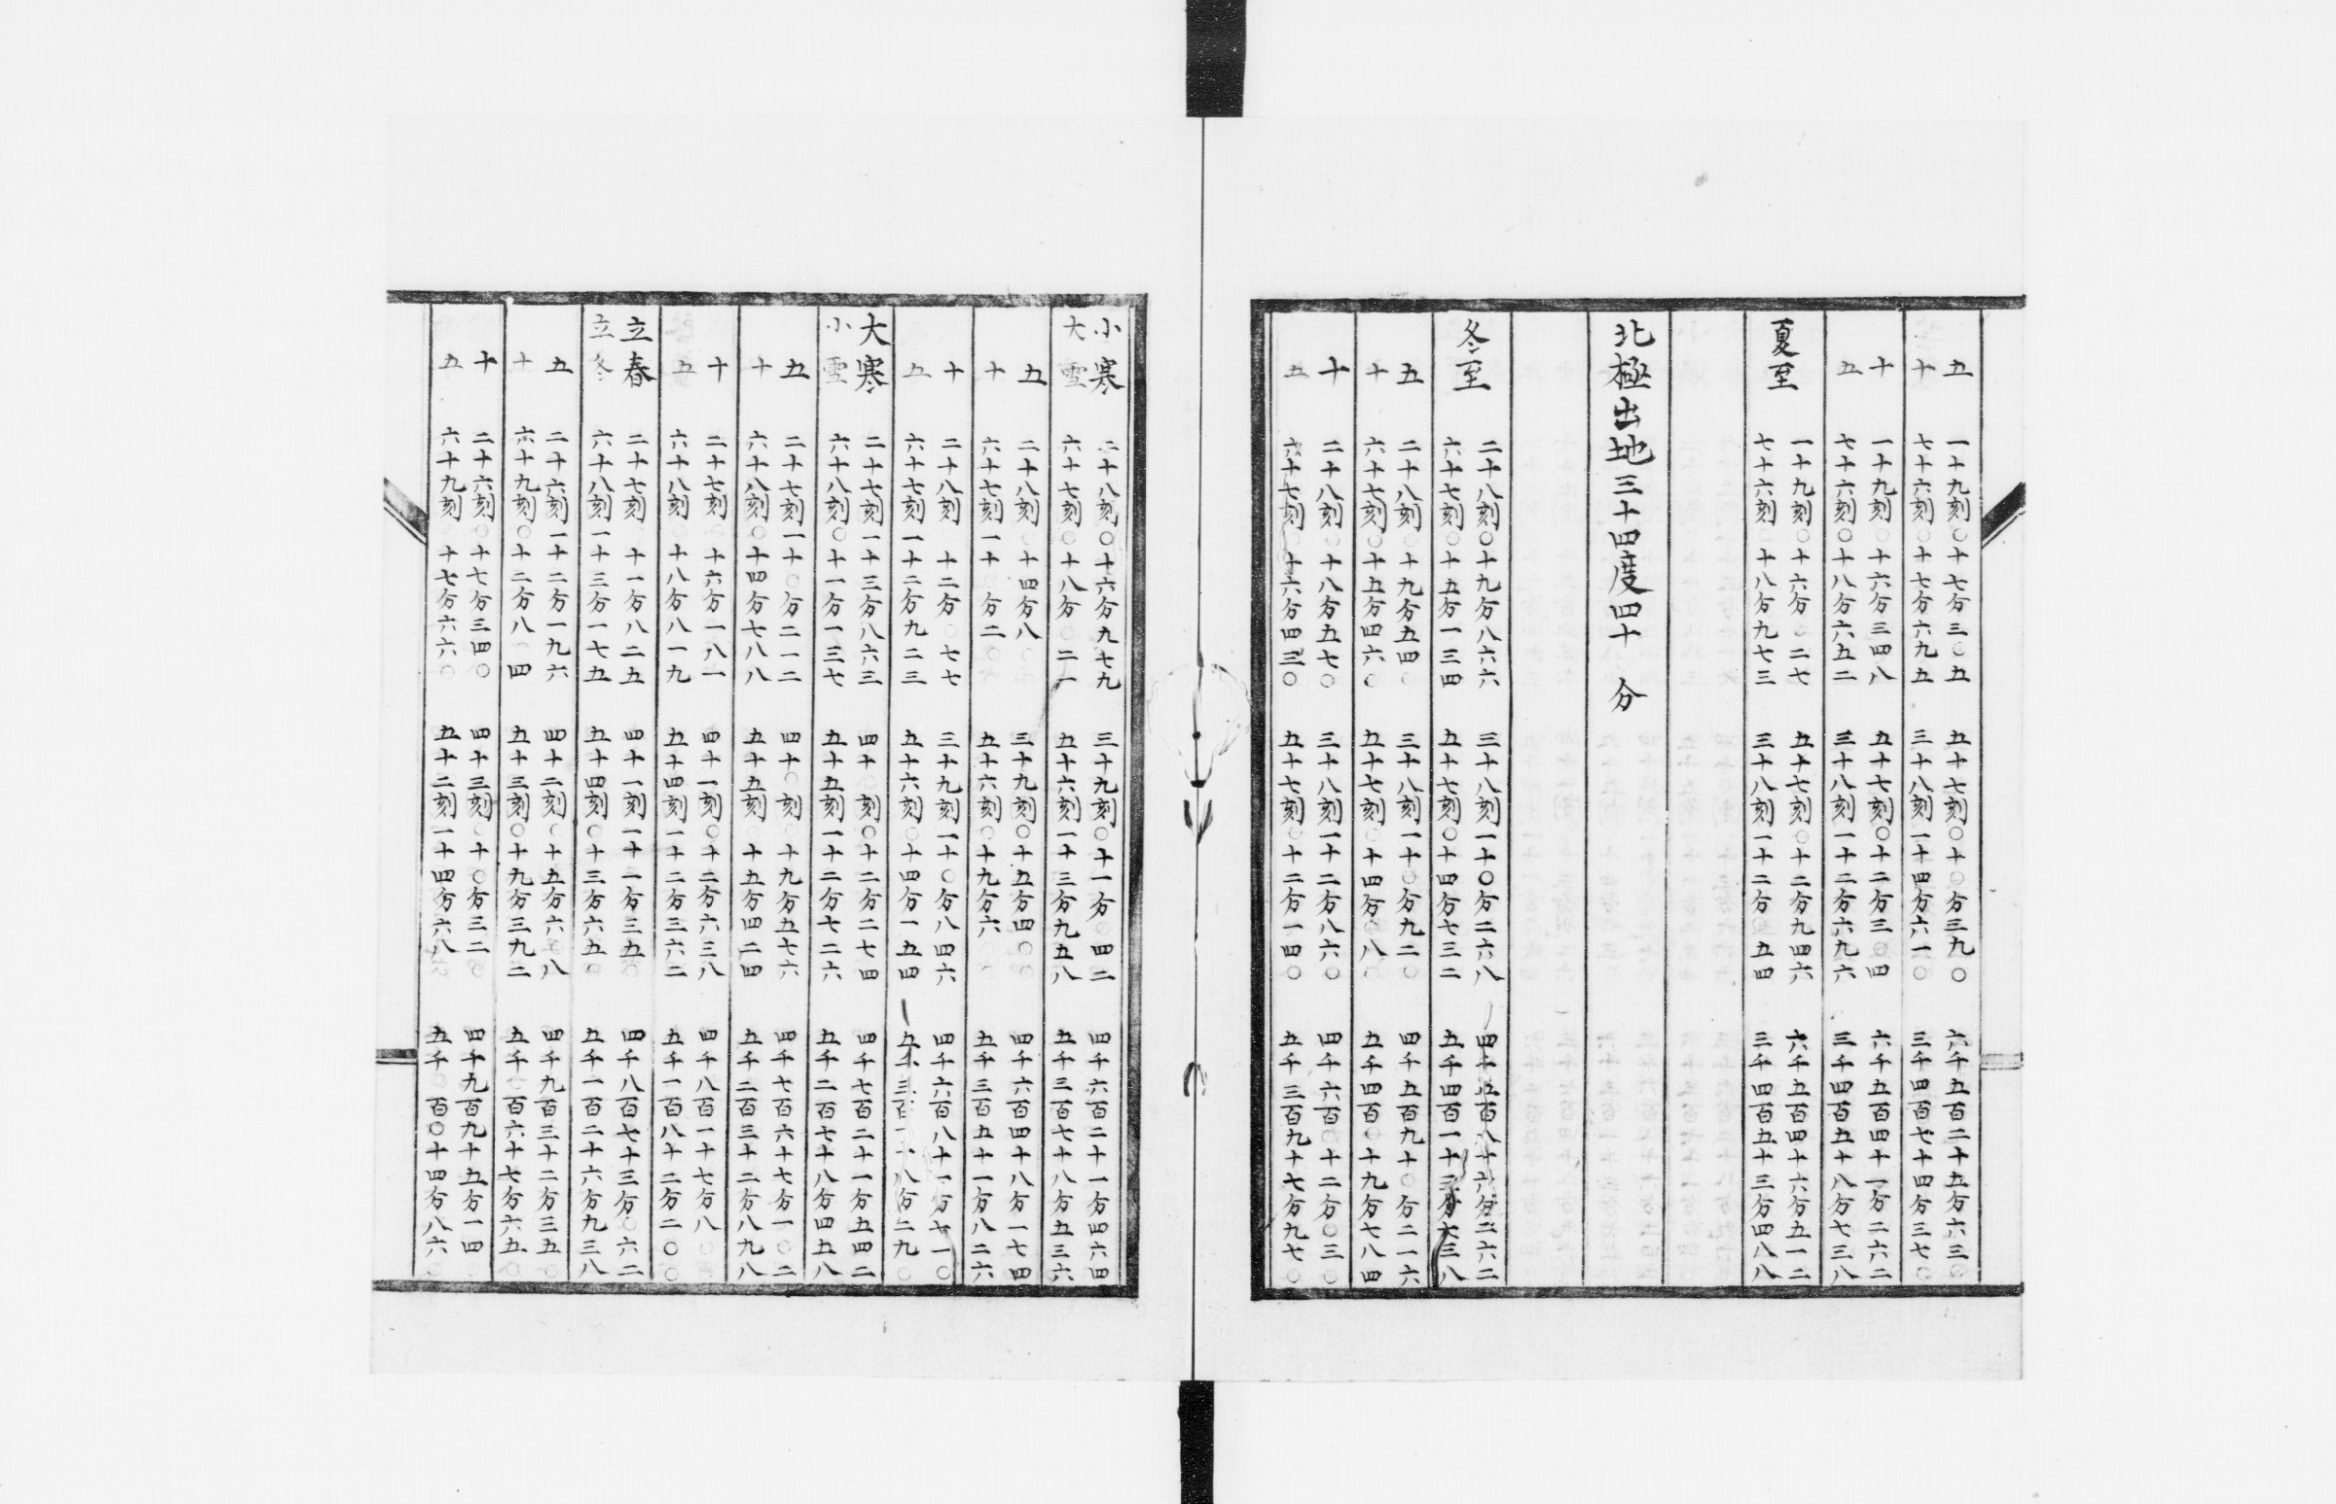 五　一十九刻〇十七分三〇五　五十七刻〇一十〇分三九〇　六千五百二十五分六三〇
十　七十六刻〇十七分六九五　三十八刻一十四分六一〇　三千四百七十四分三七〇
十　一十九刻〇十六分三四八　五十七刻〇十二分三〇四　六千五百四十一分二六二
五　七十六刻〇十八分六五二　三十八刻一十二分六九六　三千四百五十八分七三八
夏至　一十九刻〇十六分〇二七　五十七刻〇十二分九四六　六千五百四十六分五一二
七十六刻〇十八分九七三　三十八刻一十二分〇五四　三千四百五十三分四八八
北極出地三十四度四十　分
冬至　二十八刻〇十九分八六六　三十八刻一十〇分二六八　四千五百八十六分二六二
六十七刻〇十五分一三四　五十七刻〇十四分七三二　五千四百一十三分七三八
五　二十八刻〇十九分五四〇　三十八刻一十〇分九二〇　四千五百九十〇分二一六
十　六十七刻〇十五分四六〇　五十七刻〇十四分〇八〇　五千四百〇十九分七八四
十　二十八刻〇十八分五七〇　三十八刻一十二分八六〇　四千六百〇十二分〇三〇
五　六十七刻〇十六分四三〇　五十七刻〇十二分一四〇　五千三百九十七分九七〇
小寒　二十八刻〇十六分九七九　三十九刻〇十一分〇四二　四千六百二十一分四六四
大雪　六十七刻〇十八分〇二一　五十六刻一十三分九五八　五千三百七十八分五三六
五　二十八刻〇十四分八　三十九刻〇十五分四〇　四千六百四十八分一七四
十　六十七刻一十　分二　五十六刻〇十九分六　五千三百五十一分八二六
十　二十八刻　十二分〇七七　三十九刻一十〇分八四六　四千六百八十一分七一〇
五　六十七刻一十二分九二三　五十六刻〇十四分一五四　五千三百一十八分二九〇
大寒　二十七刻一十三分八六三　四十〇刻〇十二分二七四　四千七百二十一分五四二
小雪　六十八刻〇十一分一三七　五十五刻一十二分七二六　五千二百七十八分四五八
五　二十七刻一十〇分二一二　四十〇刻〇十九分五七六　四千七百六十七分一〇二
十　六十八刻〇十四分七八八　五十五刻　十五分四二四　五千二百三十二分八九八
十　二十七刻　十六分一八一　四十一刻〇十二分六三八　四千八百一十七分八〇
五　六十八刻　十八分八一九　五十四刻一十二分三六二　五千一百八十二分二〇〇
立春　二十七刻　十一分八二五　四十一刻一十一分三五〇　四千八百七十三分〇六二
立冬　六十八刻一十三分一七五　五十四刻〇十三分六五〇　五千一百二十六分九三八
五　二十六刻一十二分一九六　四十二刻〇十五分六〇八　四千九百三十二分三五〇
十　六十九刻〇十二分八〇四　五十三刻〇十九分三九二　五千〇百六十七分六五〇
十　二十六刻〇十七分三四〇　四十三刻〇十〇分三二〇　四千九百九十五分一四〇
五　六十九刻　十七分六六〇　五十二刻一十四分六八〇　五千〇百〇十四分八六〇